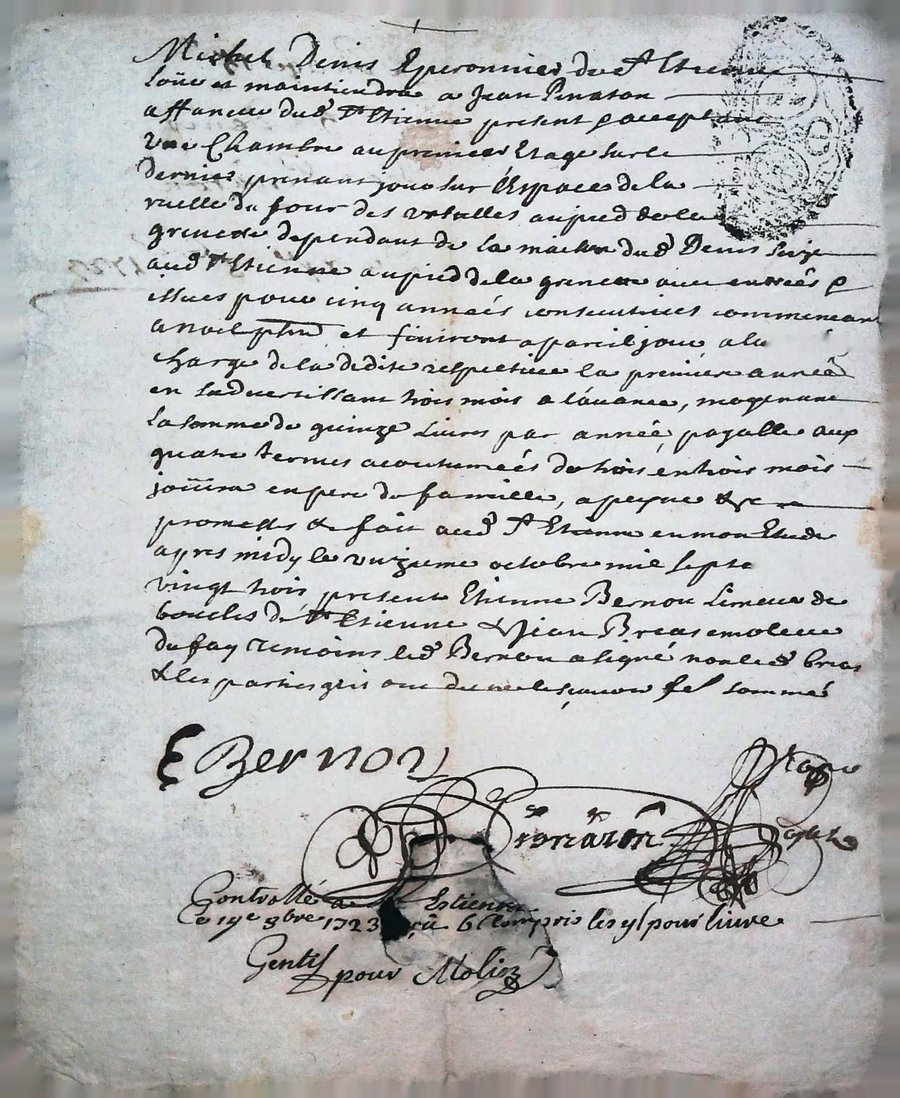 Michel Denis Eperonnier de St Etienne
loüe et maintiendra a Jean Pinaton
affaneur dud St Etienne present & acceptant
une Chambre au premier Etage sur le
dernier prenant jour sur l'Espace de la
ruelle du four des au pied de la
grenette dependant de la maison dud Denis size
aud St Etienne au pied de la grenette avec entrées &
issues pour cinq années consecutives commencant
a noel et finiront a pareil jour a la
charge de la dedite respective la premiere année
en sadvertissant trois mois a l'avance, moyenant
la somme de quinze livres par année, payable aux
quatre termes acoutumées de trois en trois mois
joüira en pere de famille, a peyne &c
promettes & fait aud St Etienne en mon Etude
apres midy le octobre mil sept
vingt trois present Etienne Bernou Limeur de
boucles de St Etienne & Jean Breas
du fay temoins led Bernou a signé non led breas
& les parties qui ont de ne le scavoir sommés
E Bernou
Controllé a St Estienne
Ce 19e 8bre 1723 compris les pour livre
Gentil
pour Moliez